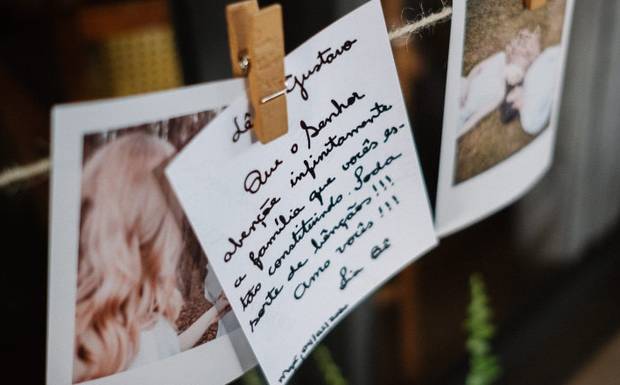 Gustavo
Que o Senhor
abençõe infinitamente
a família que vocês es-
tão constituindo. Toda
sorte de bênçãos!!!
Amo vocês!!!